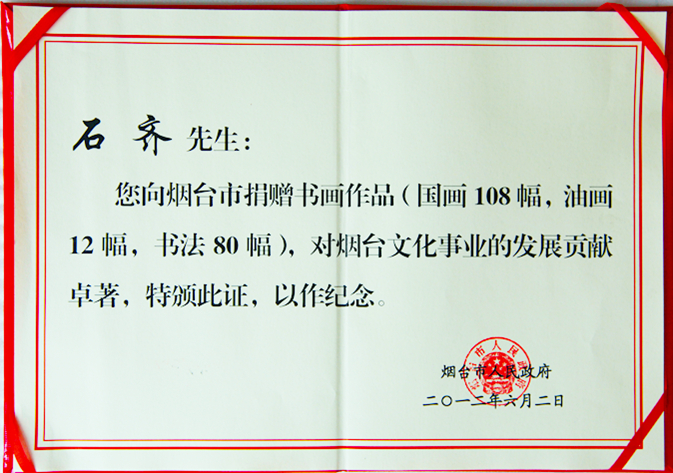 石齐先生：
您向烟台市捐赠书画作品（国画108幅，油画
12幅，书法80幅），对烟台文化事业的发展贡献
卓著，特颁此证，以作纪念。
烟台市人民政府
二〇一二年六月二日